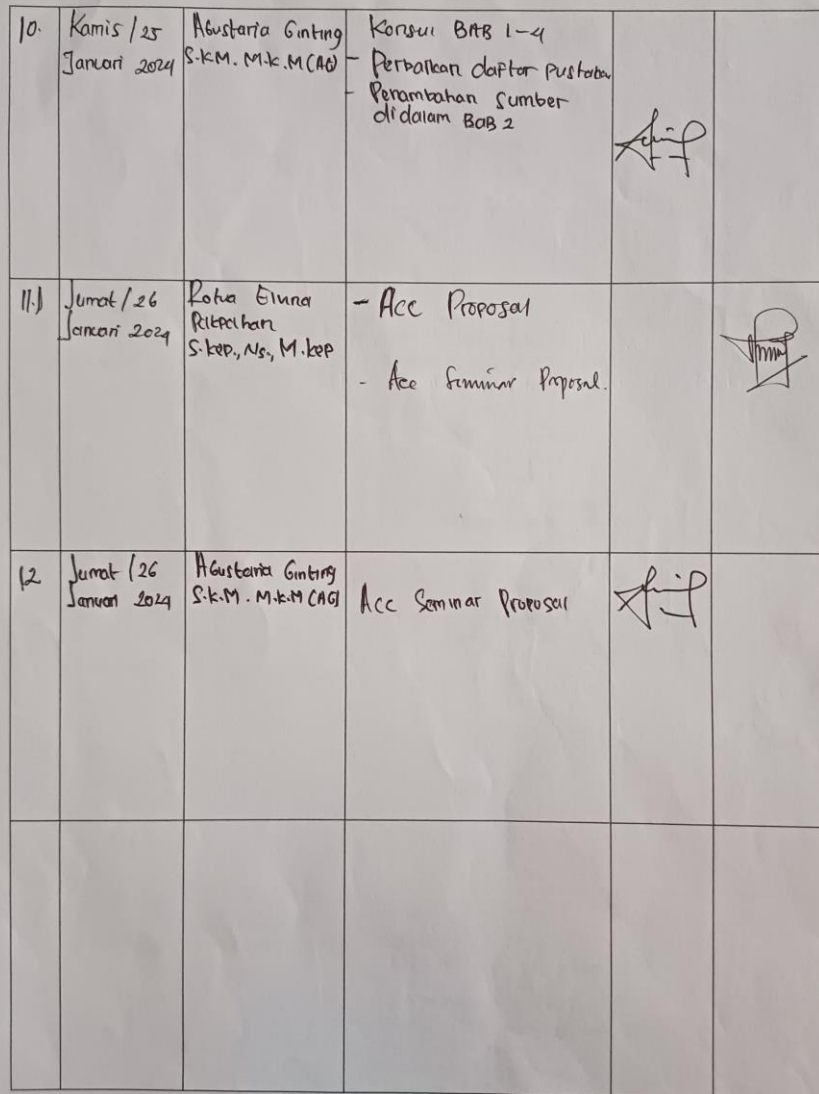 10.
Kamis / 25
Januari 2024
Agustaria Ginting
S.KM. M.K.M (AG)
Konsul BAB 1-4
- Perbaikan daftar pustaka
- Penambahan Sumber
didalam BAB 2
11.)
Jumat / 26
Januari 2024
Rotua Elvina
Pakpahan
S.kep., Ns., M.kep
- Acc Proposal
- Acc Seminar Proposal.
12
Jumat / 26
Januari 2024
Agustaria Ginting
S.K.M. M.K.M (AG)
Acc Seminar Proposal